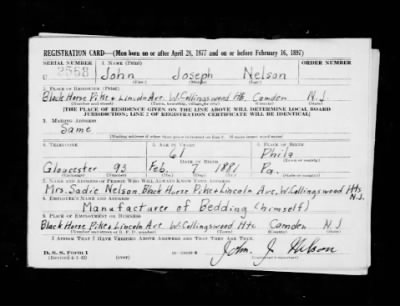 REGISTRATION CARD—(Men born on or after April 28, 1877 and on or before February 16, 1897)
SERIAL NUMBER 1. NAME (Print) ORDER NUMBER
U 2558 John Joseph Nelson
(First) (Middle) (Last)
2. PLACE OF RESIDENCE (Print)
Black Horse Pike & Lincoln Ave. W. Collingswood Hts. Camden N.J.
(Number and street) (Town, township, village, or city) (County) (State)
[THE PLACE OF RESIDENCE GIVEN ON THE LINE ABOVE WILL DETERMINE LOCAL BOARD
JURISDICTION; LINE 2 OF REGISTRATION CERTIFICATE WILL BE IDENTICAL]
3. MAILING ADDRESS
Same
4. TELEPHONE 5. AGE IN YEARS 6. PLACE OF BIRTH
61 Phila
DATE OF BIRTH
Gloucester 93 Feb. 1881 Pa.
7. NAME AND ADDRESS OF PERSON WHO WILL ALWAYS KNOW YOUR ADDRESS
Mrs. Sadie Nelson, Black Horse Pike & Lincoln Ave, W. Collingswood Hts
N.J.
8. EMPLOYER'S NAME AND ADDRESS
Manufacturer of Bedding (himself)
9. PLACE OF EMPLOYMENT OR BUSINESS
Black Horse Pike & Lincoln Ave. W. Collingswood Hts Camden N.J.
I AFFIRM THAT I HAVE VERIFIED ABOVE ANSWERS AND THAT THEY ARE TRUE.
D. S. S. Form 1
John J. Nelson